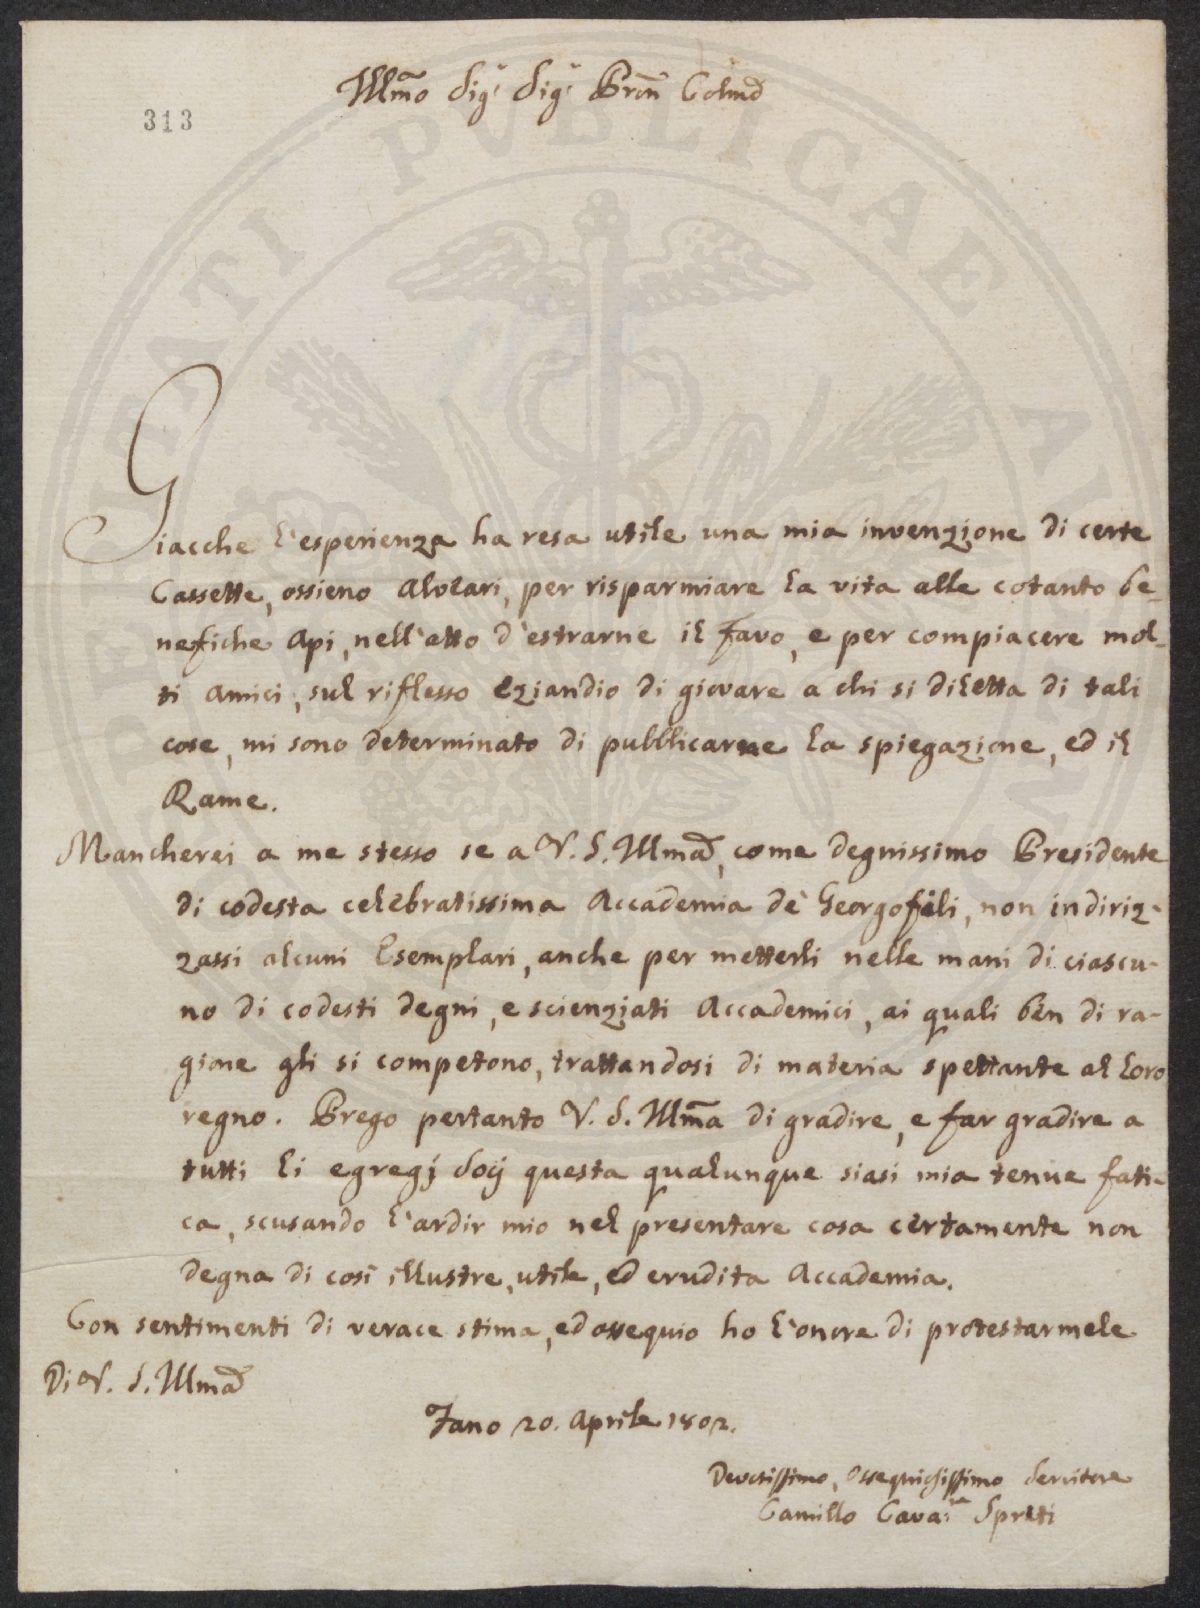 Illmo Sigr Sigr Pron Colmo
313
Giacche l'esperienza ha resa utile una mia invenzione di certe
Cassette, ossieno Alveari, per risparmiare la vita alle cotanto be-
nefiche Api, nell'atto d'estrarne il favo, e per compiacere mol-
ti Amici, sul riflesso eziandio di giovare a chi si diletta di tali
cose, mi sono determinato di pubblicarne la spiegazione, ed il
Rame.
Mancherei a me stesso se a V. S. Illma, come degnissimo Presidente
di codesta celebratissima Accademia de' Georgofili, non indiriz-
zassi alcuni Esemplari, anche per metterli nelle mani di ciascu-
no di codesti degni, e scienziati Accademici, ai quali ben di ra-
gione gli si competono, trattandosi di materia spettante al loro
regno. Prego pertanto V. S. Illma di gradire, e far gradire a
tutti li egregj Socj questa qualunque siasi mia tenue fati-
ca, scusando l'ardir mio nel presentare cosa certamente non
degna di così illustre, utile, ed erudita Accademia.
Con sentimenti di verace stima, ed ossequio ho l'onore di protestarmele
Di V. S. Illma
Fano 20. Aprile 1802.
Devotissimo, Ossequiosissimo Servitore
Camillo Cava:re Spreti
PVBLICAE